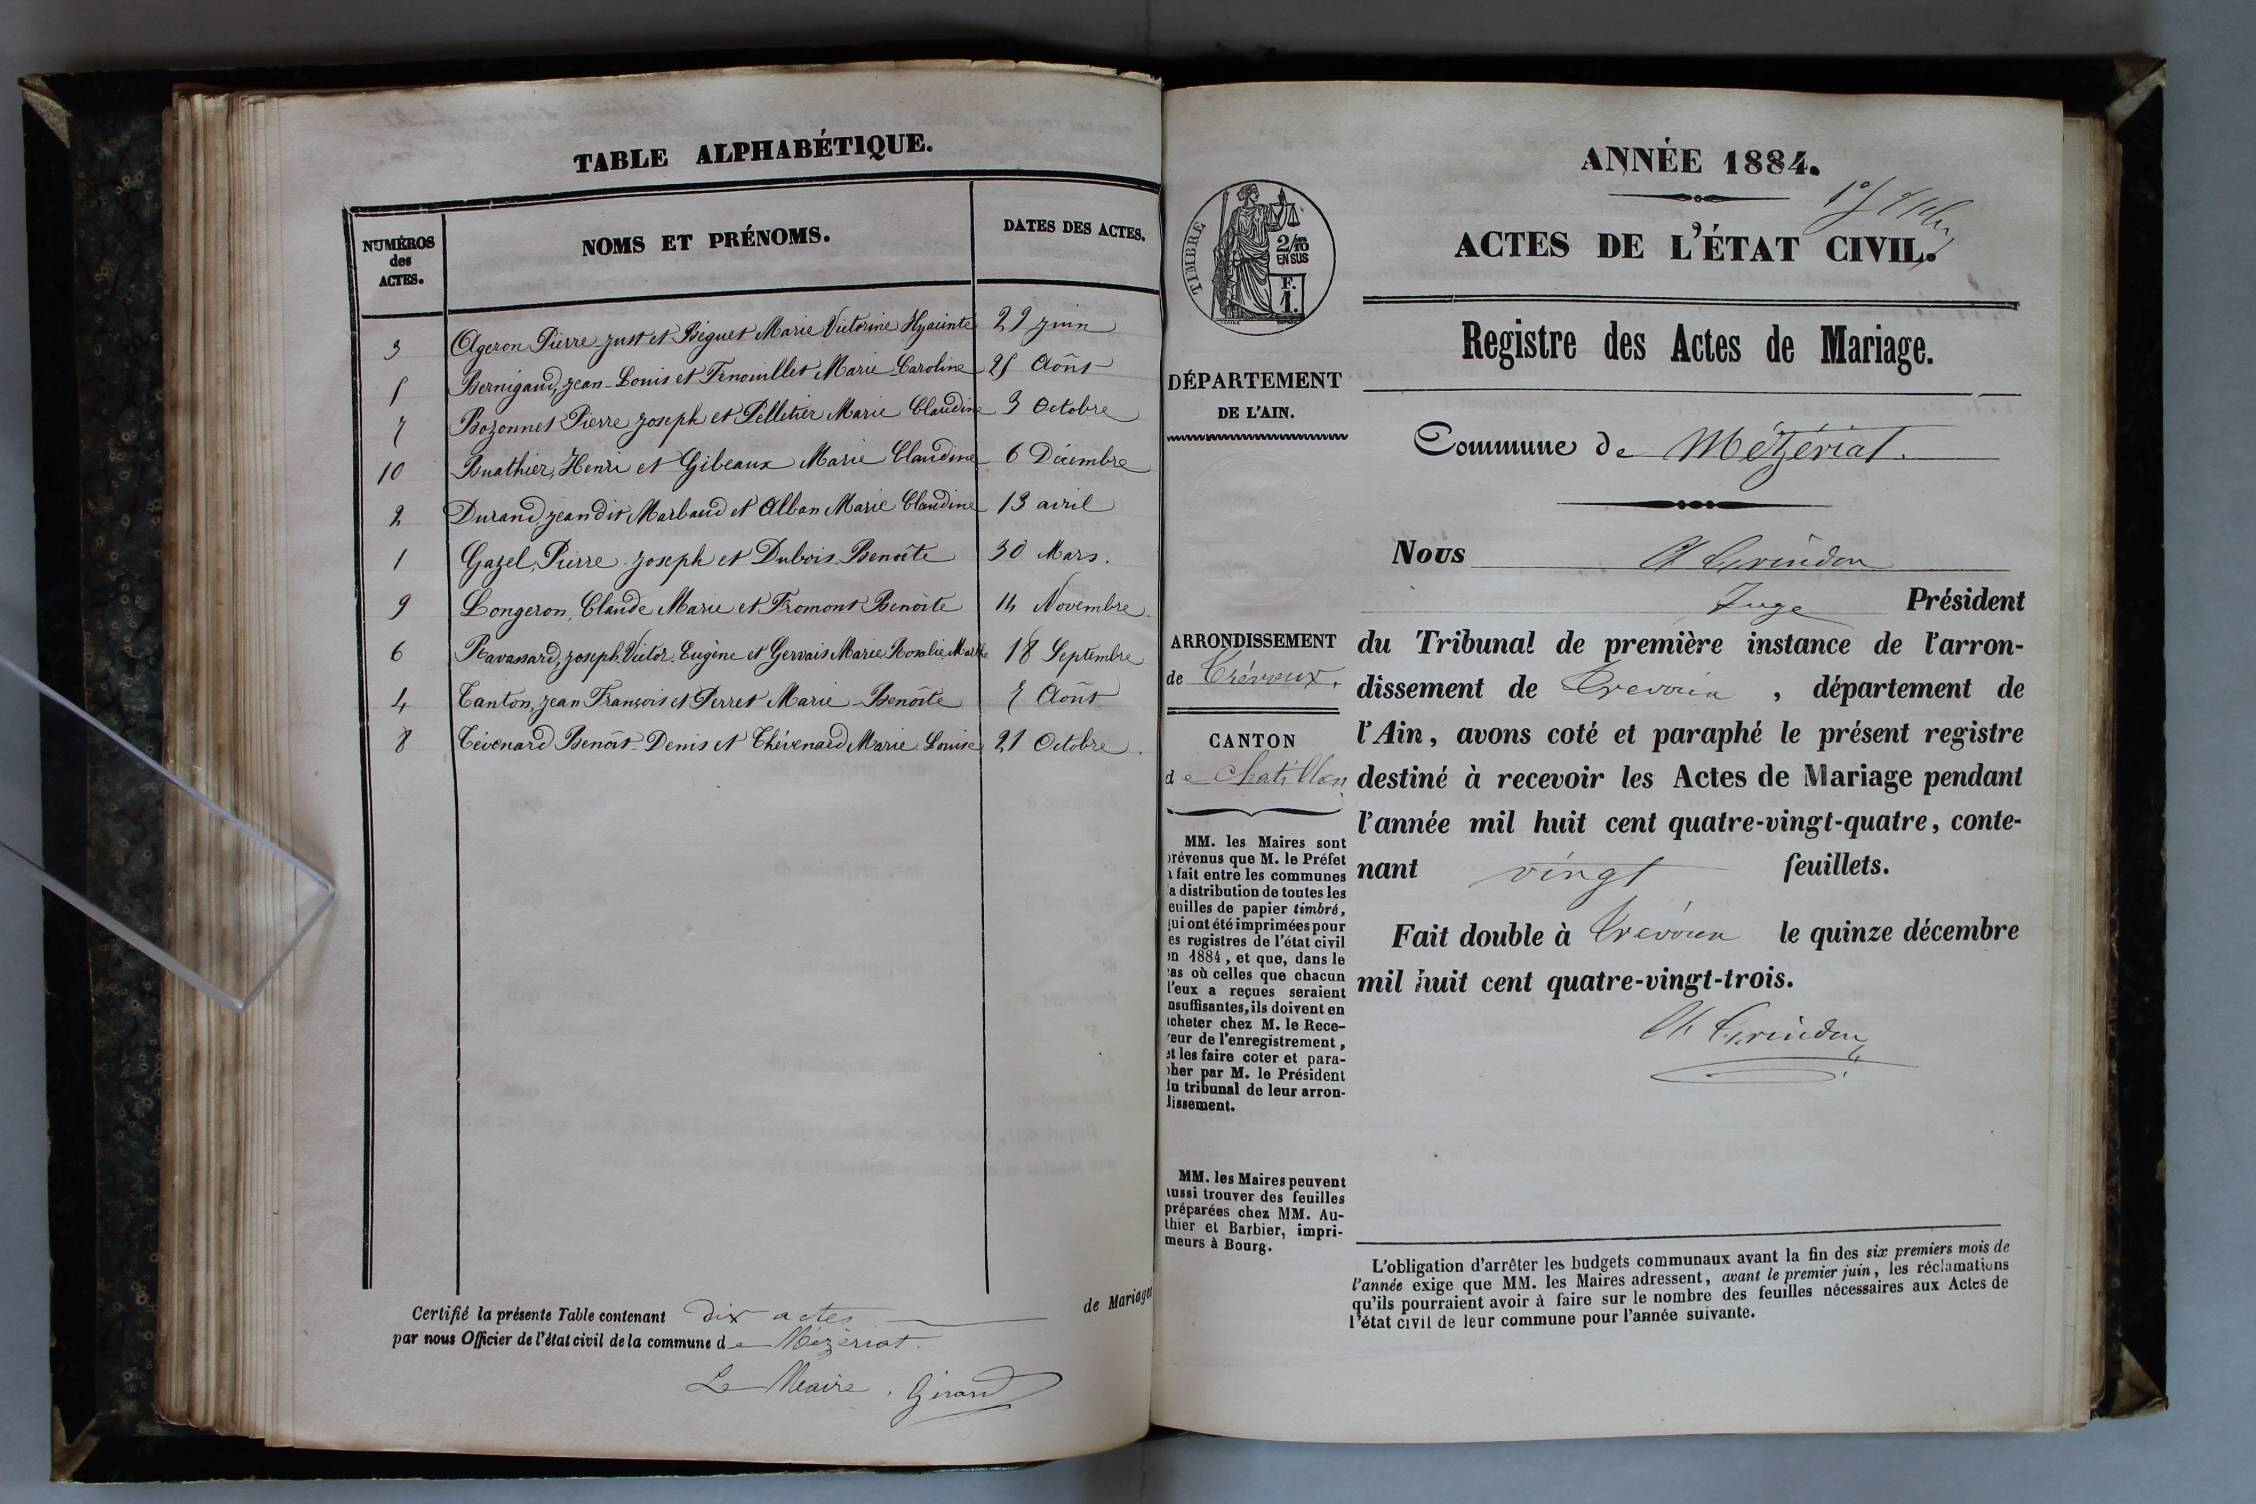 TABLE ALPHABÉTIQUE.
NUMÉROS des ACTES. NOMS ET PRÉNOMS. DATES DES ACTES.
3 Ageron Pierre Just et Béguet Marie Victorine Hyacinte 29 juin
5 Bernigaud, Jean-Louis et Fenouillet Marie Caroline 25 Août
7 Bozonnet Pierre Joseph et Pelletier Marie Claudine 3 Octobre
10 Buathier, Henri et Gibeaux Marie Claudine 6 Décembre
2 Durand, Jean dit Marbaud et Alban Marie Claudine 13 avril
1 Gazel, Pierre Joseph et Dubois Benoîte 30 Mars.
9 Longeron, Claude Marie et Fromont Benoîte 14 Novembre.
6 Ravassard, Joseph Victor Eugène et Gervais Marie Rosalie Marthe 18 Septembre
4 Tanton, Jean François et Perret Marie Benoîte 7 Août
8 Tévenard Benoît Denis et Thévenard Marie Louise 21 Octobre.
Certifié la présente Table contenant dix actes de Mariages
par nous Officier de l'état civil de la commune de Mézériat.
Le Maire. Girard
ANNÉE 1884.
ACTES DE L'ÉTAT CIVIL.
TIMBRE
2/10
EN SUS
F.
1.
Registre des Actes de Mariage.
DÉPARTEMENT
DE L'AIN.
Commune de Mézériat.
ARRONDISSEMENT
de Trévoux.
CANTON
de Chatillon
MM. les Maires sont
prévenus que M. le Préfet
a fait entre les communes
la distribution de toutes les
feuilles de papier timbré,
qui ont été imprimées pour
les registres de l'état civil
en 1884, et que, dans le
cas où celles que chacun
d'eux a reçues seraient
insuffisantes, ils doivent en
acheter chez M. le Rece-
veur de l'enregistrement,
et les faire coter et para-
pher par M. le Président
du tribunal de leur arron-
dissement.
MM. les Maires peuvent
aussi trouver des feuilles
préparées chez MM. Au-
thier et Barbier, impri-
meurs à Bourg.
Nous Ch Grindon
Juge Président
du Tribunal de première instance de l'arron-
dissement de Trevoux, département de
l'Ain, avons coté et paraphé le présent registre
destiné à recevoir les Actes de Mariage pendant
l'année mil huit cent quatre-vingt-quatre, conte-
nant vingt feuillets.
Fait double à Trévoux le quinze décembre
mil huit cent quatre-vingt-trois.
Ch Grindon
L'obligation d'arrêter les budgets communaux avant la fin des six premiers mois de
l'année exige que MM. les Maires adressent, avant le premier juin, les réclamations
qu'ils pourraient avoir à faire sur le nombre des feuilles nécessaires aux Actes de
l'état civil de leur commune pour l'année suivante.